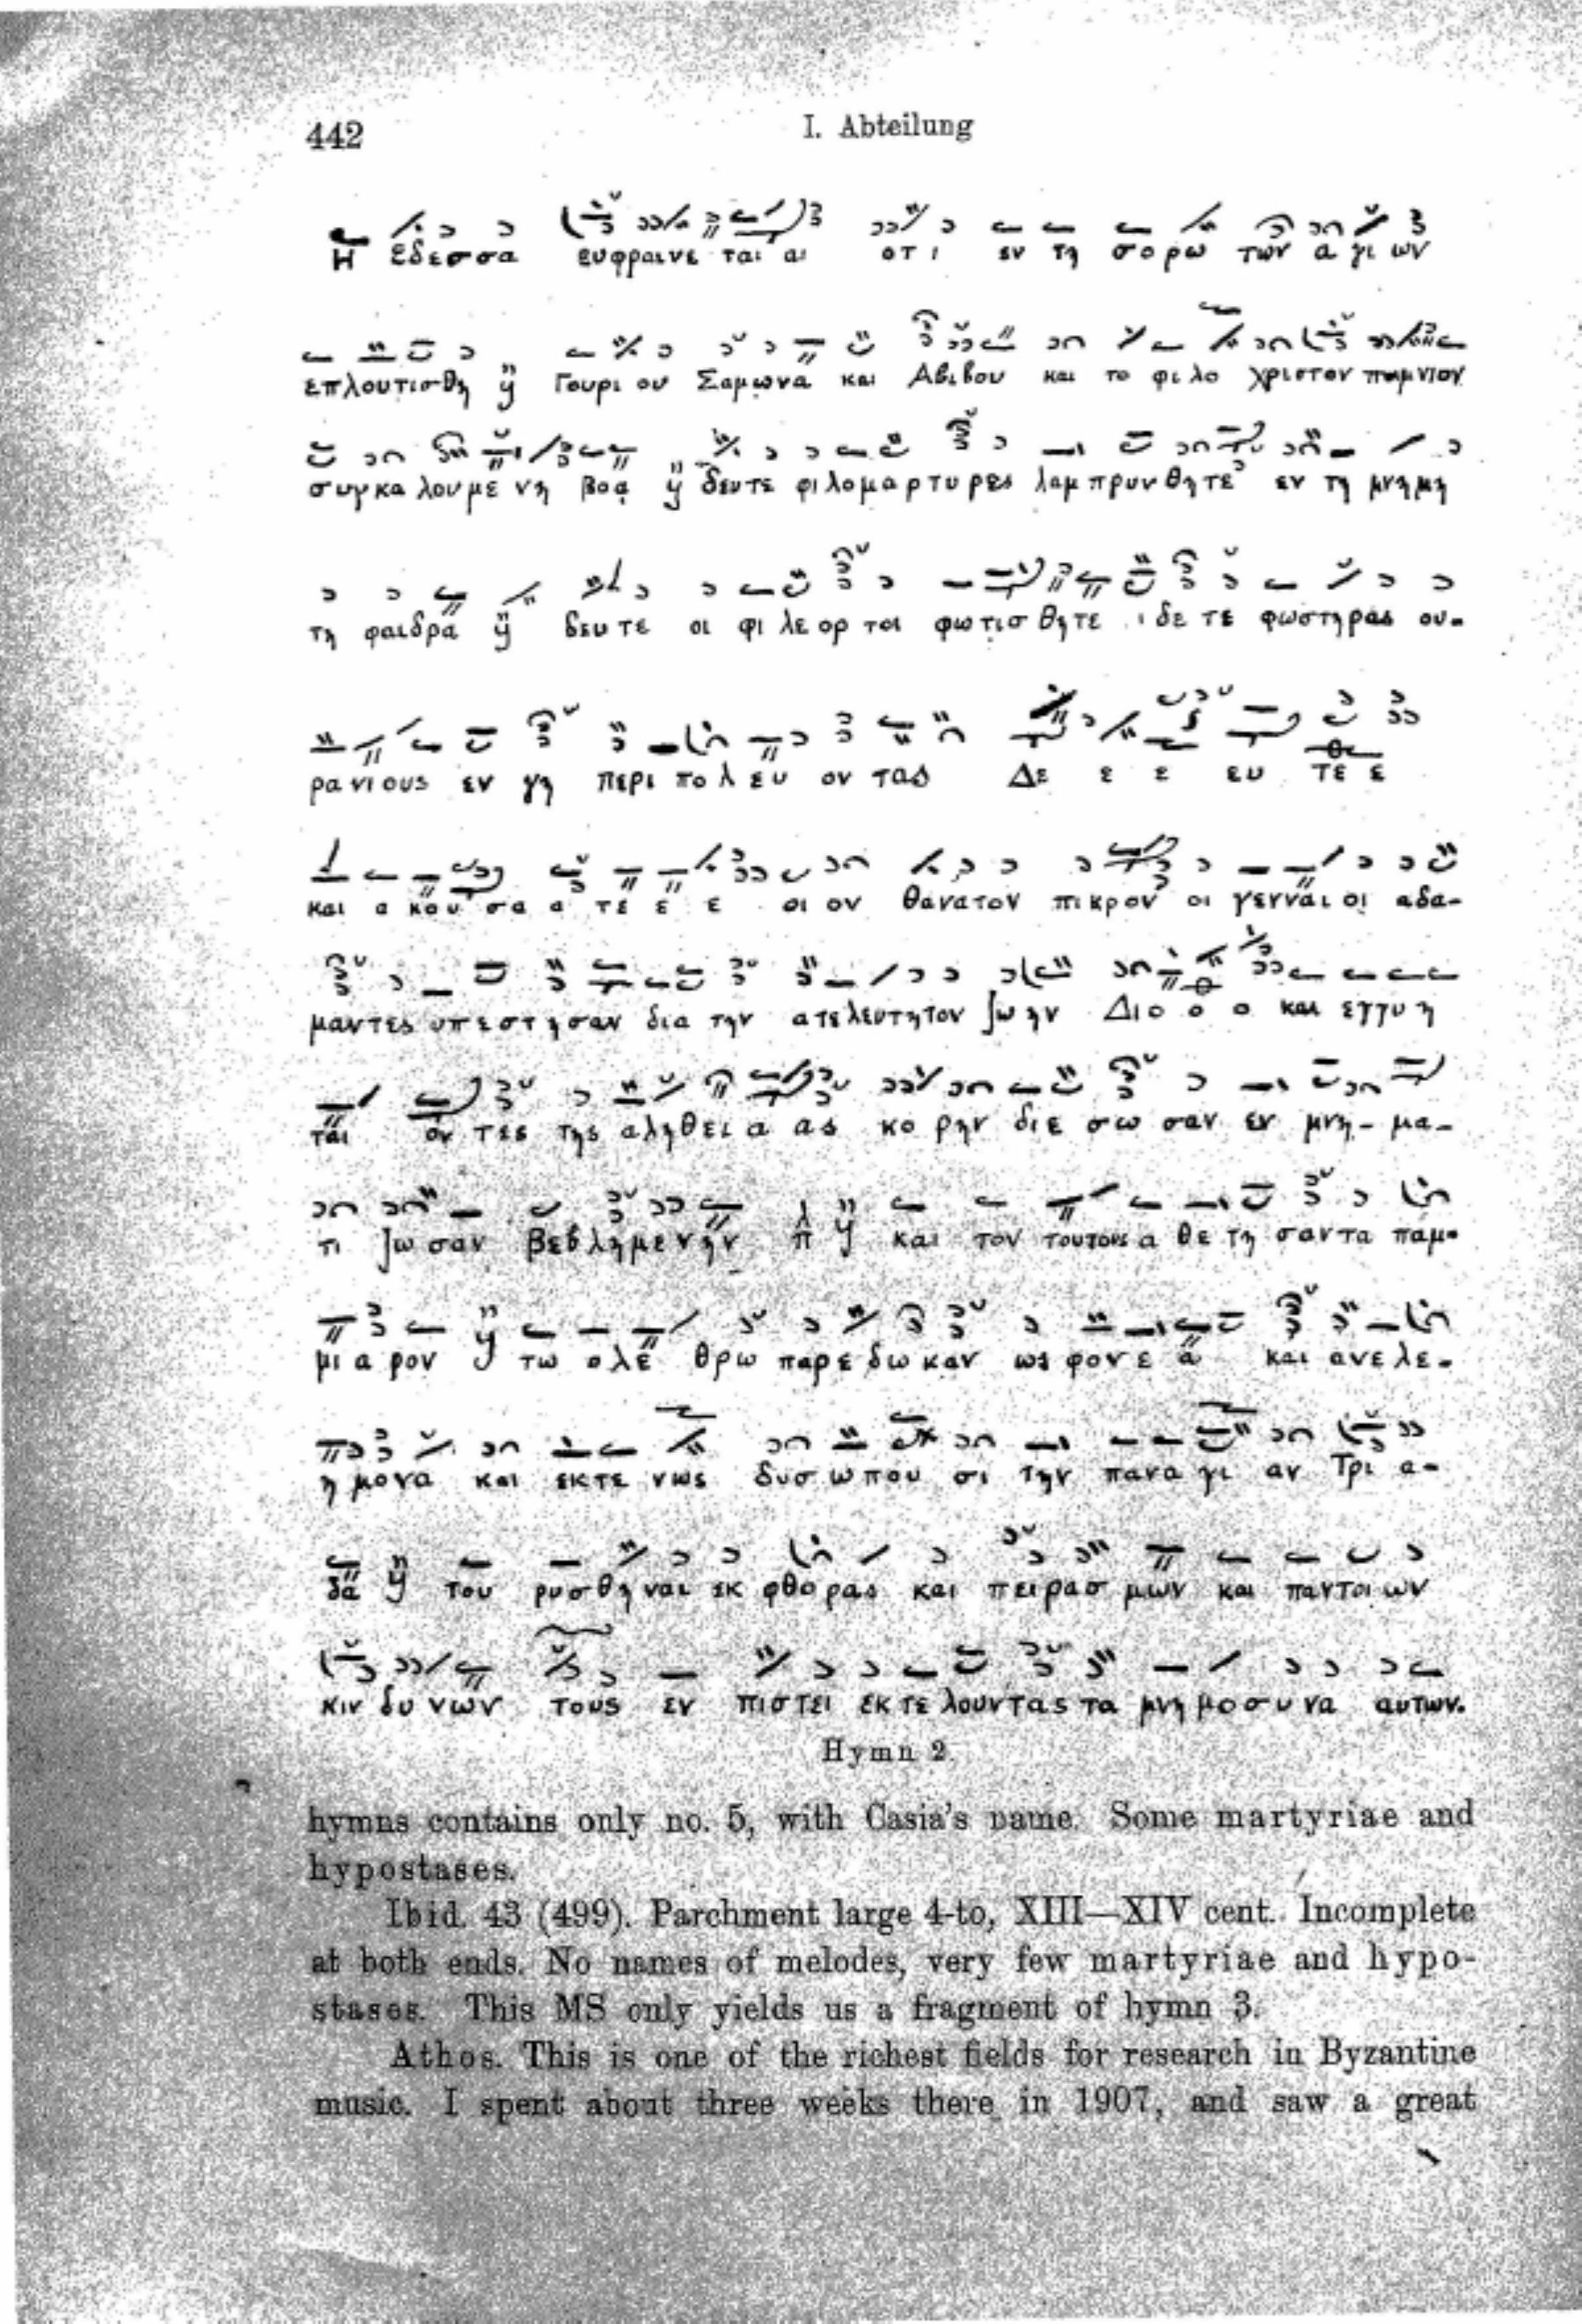 442
I. Abteilung
Η εδεσσα ευφραινε ται αι οτι εν τη σορω των α γι ων
επλουτισθη Γουρι ου Σαμωνα και Αβιβου και το φιλο χριστον ποιμνιον
συγκα λουμε νη βοα δευτε φιλομαρτυρες λαμπρυνθητε εν τη μνημη
τη φαιδρα δευ τε οι φι λε ορ τοι φωτισ θητε ι δε τε φωστηρας ου-
ρα νι ους εν γη περι πο λ ευ ον τας Δε ε ε ευ τε ε
και α κου σα α τε ε ε οι ον θανατον πικρον οι γενναι οι αδα-
μαντες υπεστησαν δια την ατελευτητον ζω ην Διο ο ο και εγγυ η
ται ον τες της αληθει α ας κο ρην διε σω σαν εν μνη- μα-
τι ζω σαν βεβλημενην π και τον τουτους α θε τη σαντα παμ-
μι α ρον τω ολε θρω παρε δω καν ως φον ε α και ανελε-
η μονα και εκτε νως δυσ ωπου σι την πανα γι αν Τρι α-
δα του ρυσθη ναι εκ φθορας και πειρασ μων και παντοι ων
κιν δυ νων τους εν πιστει εκ τε λουντας τα μνημοσυνα αυτων.
Hymn 2.
hymns contains only no. 5, with Casia's name. Some martyriae and
hypostases.
Ibid. 43 (499). Parchment large 4-to, XIII—XIV cent. Incomplete
at both ends. No names of melodes, very few martyriae and hypo-
stases. This MS only yields us a fragment of hymn 3.
Athos. This is one of the richest fields for research in Byzantine
music. I spent about three weeks there in 1907, and saw a great